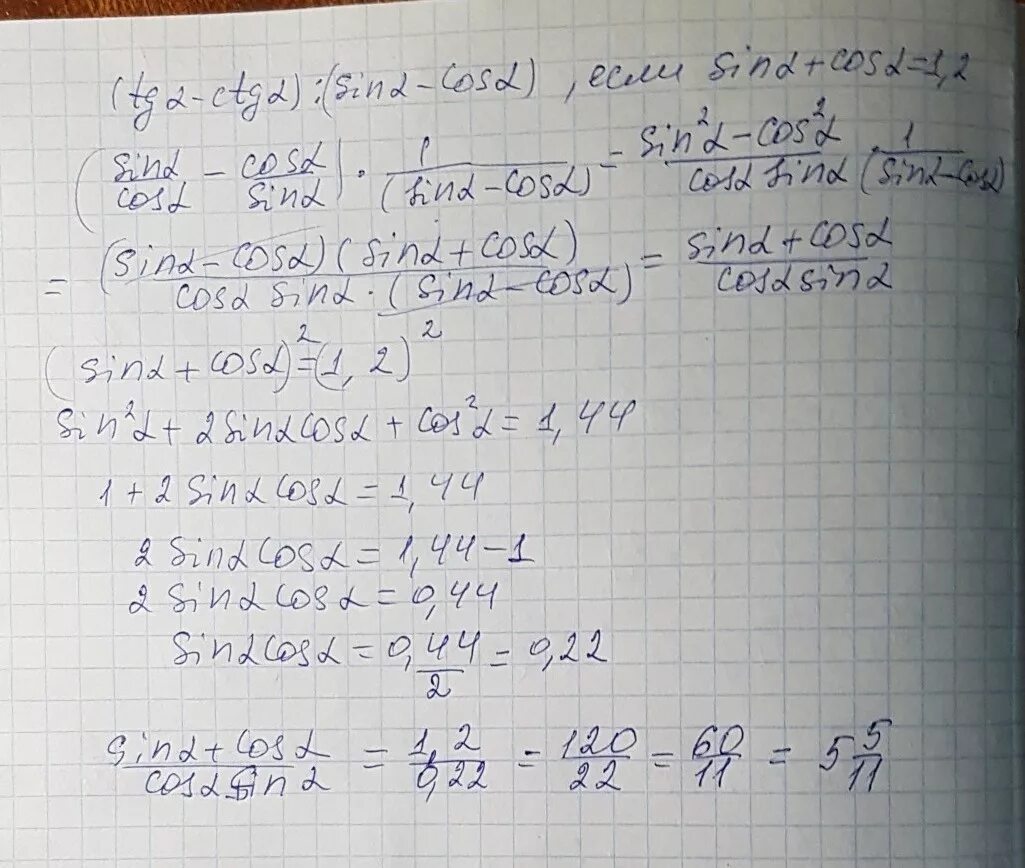 (tgα-ctgα):(sinα-cosα), если sinα+cosα=1,2
(sinα/cosα - cosα/sinα) · 1/(sinα-cosα) = (sin²α-cos²α)/(cosα sinα) · 1/(sinα-cosα)
= (sinα-cosα)(sinα+cosα)/(cosα sinα·(sinα-cosα)) = (sinα+cosα)/(cosα sinα)
(sinα+cosα)²=(1,2)²
sin²α+2sinαcosα+cos²α=1,44
1+2sinαcosα=1,44
2sinαcosα=1,44-1
2sinαcosα=0,44
sinαcosα=0,44/2=0,22
(sinα+cosα)/(cosα sinα) = 1,2/0,22 = 120/22 = 60/11 = 5 5/11